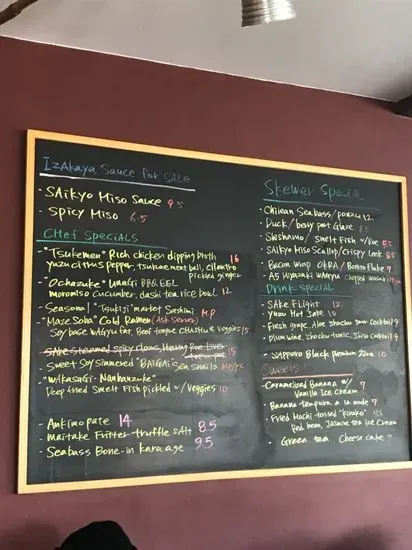 Izakaya Sauce for Sale
- Saikyo Miso Sauce 9.5
- Spicy Miso 6.5
Chef Specials
- "Tsukemen" Rich chicken dipping broth 16
yuzu citrus pepper, tsukune meat ball, cilantro
pickled ginger
- "Ochazuke" Unagi BBQ EEL
moromiso cucumber, dashi tea rice bowl 12
- Seasonal "Tsukiji" market Sashimi M.P
- "Maze Soba" Cold Ramen (Ask Server)
Soy base wagyu fat, Beef tongue chashu & Veggies 15
Sake steamed spicy clams, 15
- Sweet Soy simmered "BAIGAI" Sea snail
- "Wakasagi" Nanbanzuke"
Deep fried Smelt Fish pickled w/ veggies 10
- Ankimo pate 14
- Maitake Fritter truffle salt 8.5
- Seabass Bone-in karaage 9.5
Skewer Special
- Chilean Seabass / ponzu 12
- Duck / berry port glaze 8.5
- Shishamo / Smelt Fish w/ Roe 5.5
- Saikyo Miso Scallop / Crispy Leek 8.5
- Bacon wrap OKRA / Bonito Flake 9
- A5 Miyazaki Wagyu chopped wasabi
Drink Special
- Sake Flight 12
- Yuzu Hot Sake 10
- Fresh grape, Aloe shochu sour Cocktail 9
- Plum wine, shochu tonic, Shiso Cocktail 9
- Sapporo Black premium 22oz 10
Sweets
- Caramelized Banana w/ 7
Vanilla Ice Cream
- Banana tempura a la mode 7
- Fried Mochi tossed "kinako"
Red bean, Jasmine tea Ice Cream
- Green tea Cheese cake 7